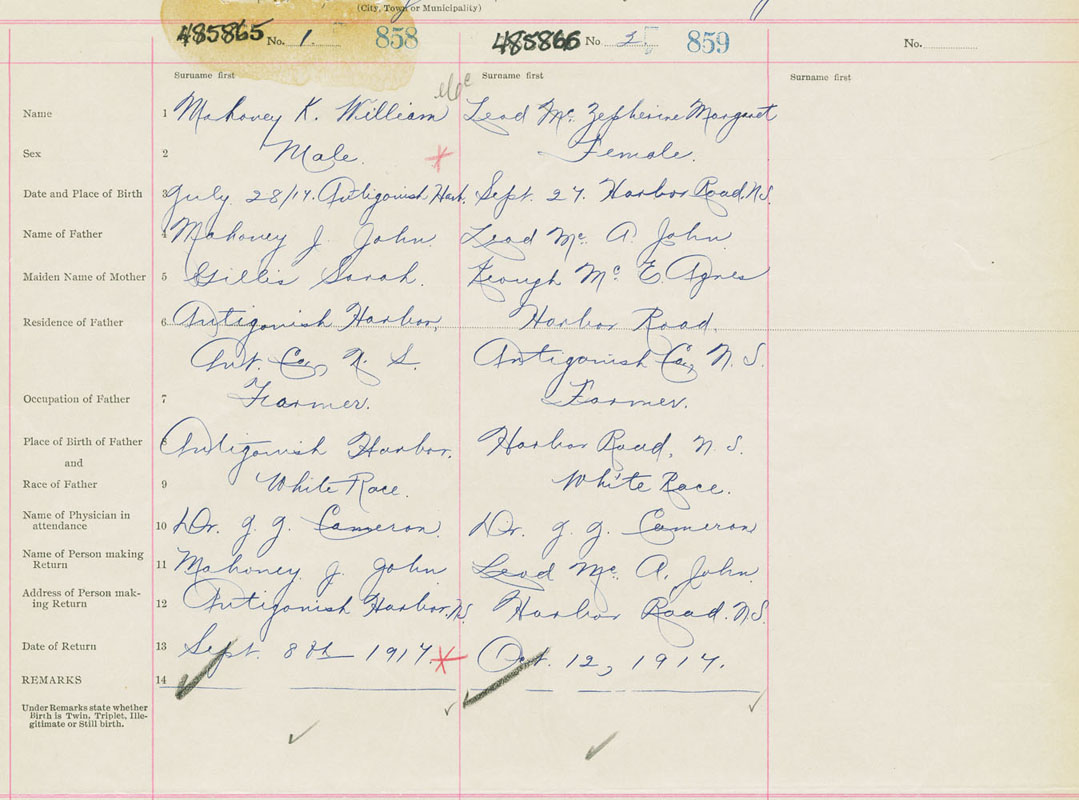 (City, Town or Municipality)
485865 No. 1. 858
485866 No 2. 859
No.
Surname first
Surname first
Surname first
Name 1 Mahoney K. William Leod Mc. Zepherine Margaret
Sex 2 Male. Female.
Date and Place of Birth 3 July. 28/17. Antigonish Harb. Sept. 27. Harbor Road. N.S.
Name of Father 4 Mahoney J. John. Leod Mc. A. John
Maiden Name of Mother 5 Gillis Sarah. Keough Mc. E. Agnes
Residence of Father 6 Antigonish Harbor, Harbor Road.
Ant. Co, N. S. Antigonish Co, N. S.
Occupation of Father 7 Farmer. Farmer.
Place of Birth of Father 8 Antigonish Harbor. Harbor Road, N. S.
and
Race of Father 9 White Race. White Race.
Name of Physician in
attendance 10 Dr. J. J. Cameron. Dr. J. J. Cameron
Name of Person making
Return 11 Mahoney J. John Leod Mc. A. John
Address of Person mak-
ing Return 12 Antigonish Harbor. N.S. Harbor Road. N.S.
Date of Return 13 Sept. 8th 1917. Oct. 12, 1917.
REMARKS 14
Under Remarks state whether
Birth is Twin, Triplet, Ille-
gitimate or Still birth.